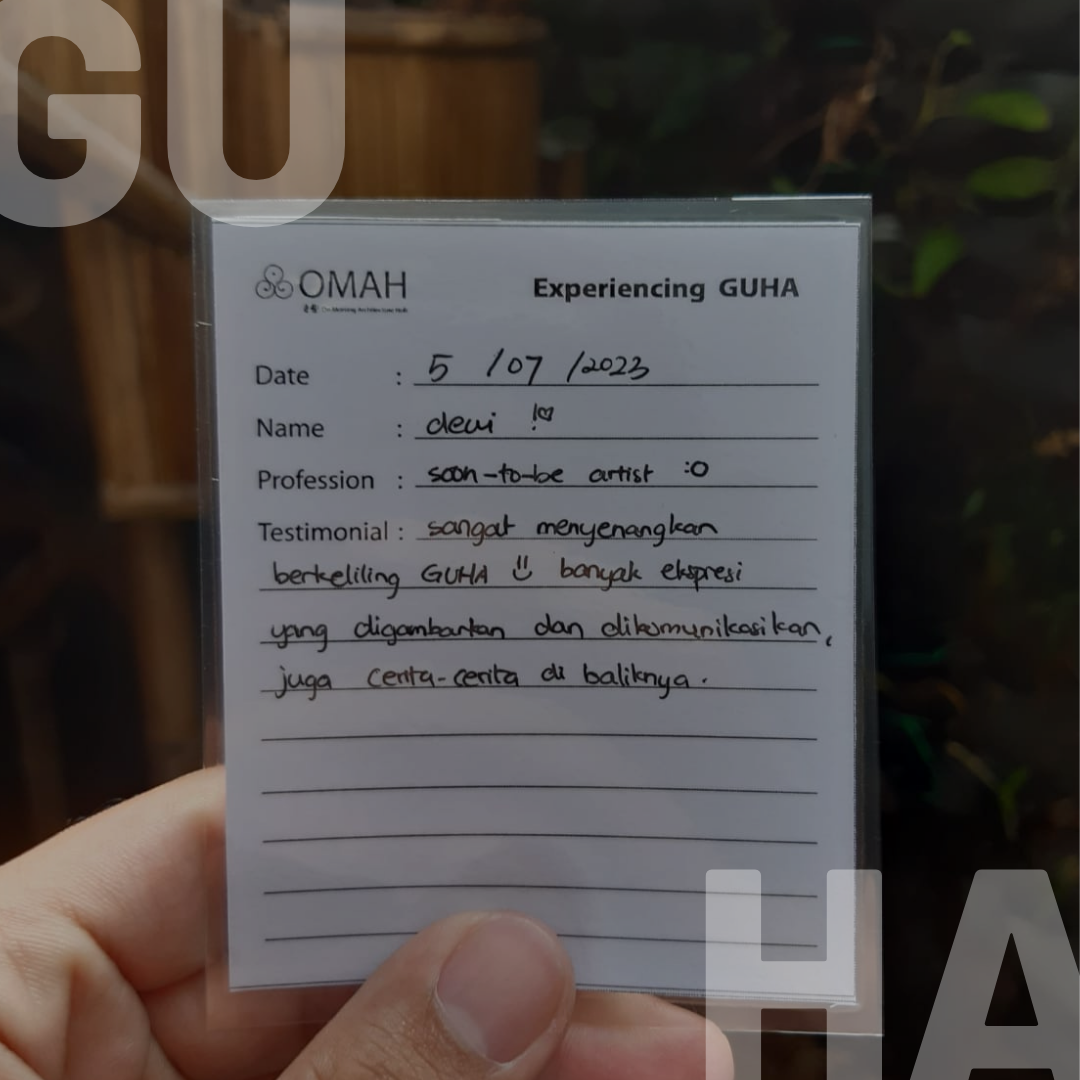 GU
OMAH
Experiencing GUHA
Date : 5 /07 /2023
Name : dewi !♡
Profession : soon-to-be artist :O
Testimonial : sangat menyenangkan
berkeliling GUHA :) banyak ekspresi
yang digambarkan dan dikomunikasikan,
juga cerita-cerita di baliknya.
HA